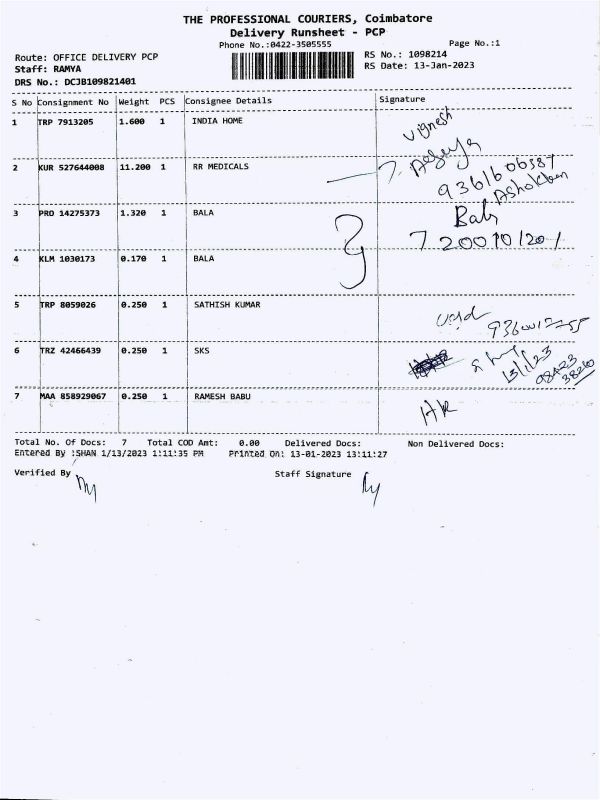 THE PROFESSIONAL COURIERS, Coimbatore
Delivery Runsheet - PCP
Phone No.:0422-3505555
Page No.:1
Route: OFFICE DELIVERY PCP
RS No.: 1098214
Staff: RAMYA
RS Date: 13-Jan-2023
DRS No.: DCJB109821401
S No Consignment No Weight PCS Consignee Details Signature
1 TRP 7913205 1.600 1 INDIA HOME
Vignesh
2 KUR 527644008 11.200 1 RR MEDICALS
3 PRO 14275373 1.320 1 BALA
4 KLM 1030173 0.170 1 BALA
5 TRP 8059026 0.250 1 SATHISH KUMAR
6 TRZ 42466439 0.250 1 SKS
13/1/23
7 MAA 858929067 0.250 1 RAMESH BABU
Total No. Of Docs: 7 Total COD Amt: 0.00 Delivered Docs: Non Delivered Docs:
Entered By :SHAN 1/13/2023 1:11:35 PM Printed On: 13-01-2023 13:11:27
Verified By
Staff Signature